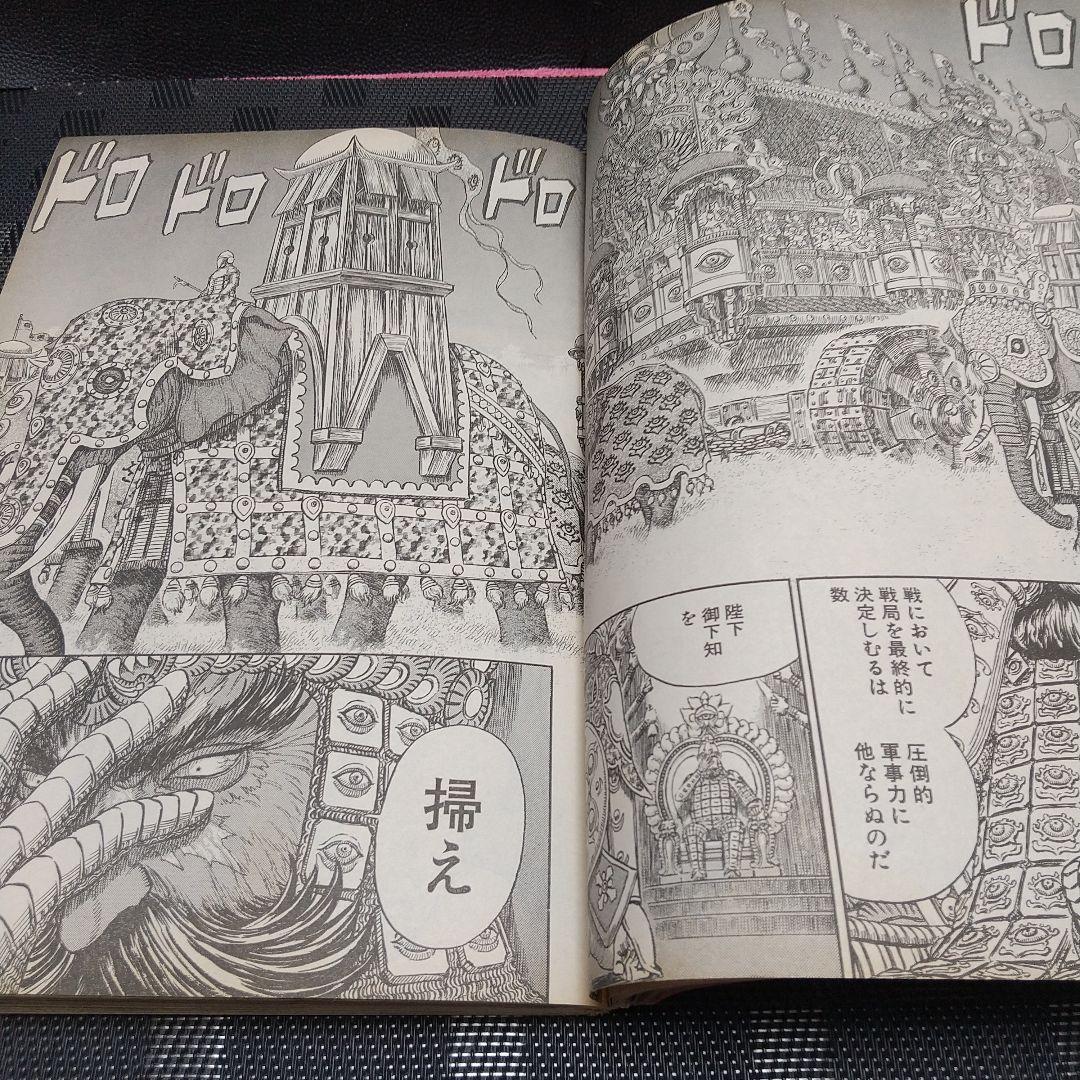 ドロ
ドロ
戦において
戦局を最終的に
決定しむるは
数
圧倒的
軍事力に
他ならぬのだ
陛下
御下知
を
ドロ
ドロ
ドロ
掃え